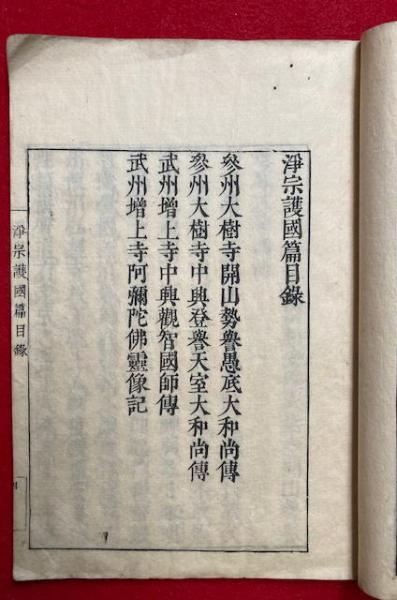 淨宗護國篇目錄
參州大樹寺開山勢譽愚底大和尚傳
參州大樹寺中興登譽天室大和尚傳
武州增上寺中興觀智國師傳
武州增上寺阿彌陀佛靈像記
淨宗護國篇目錄